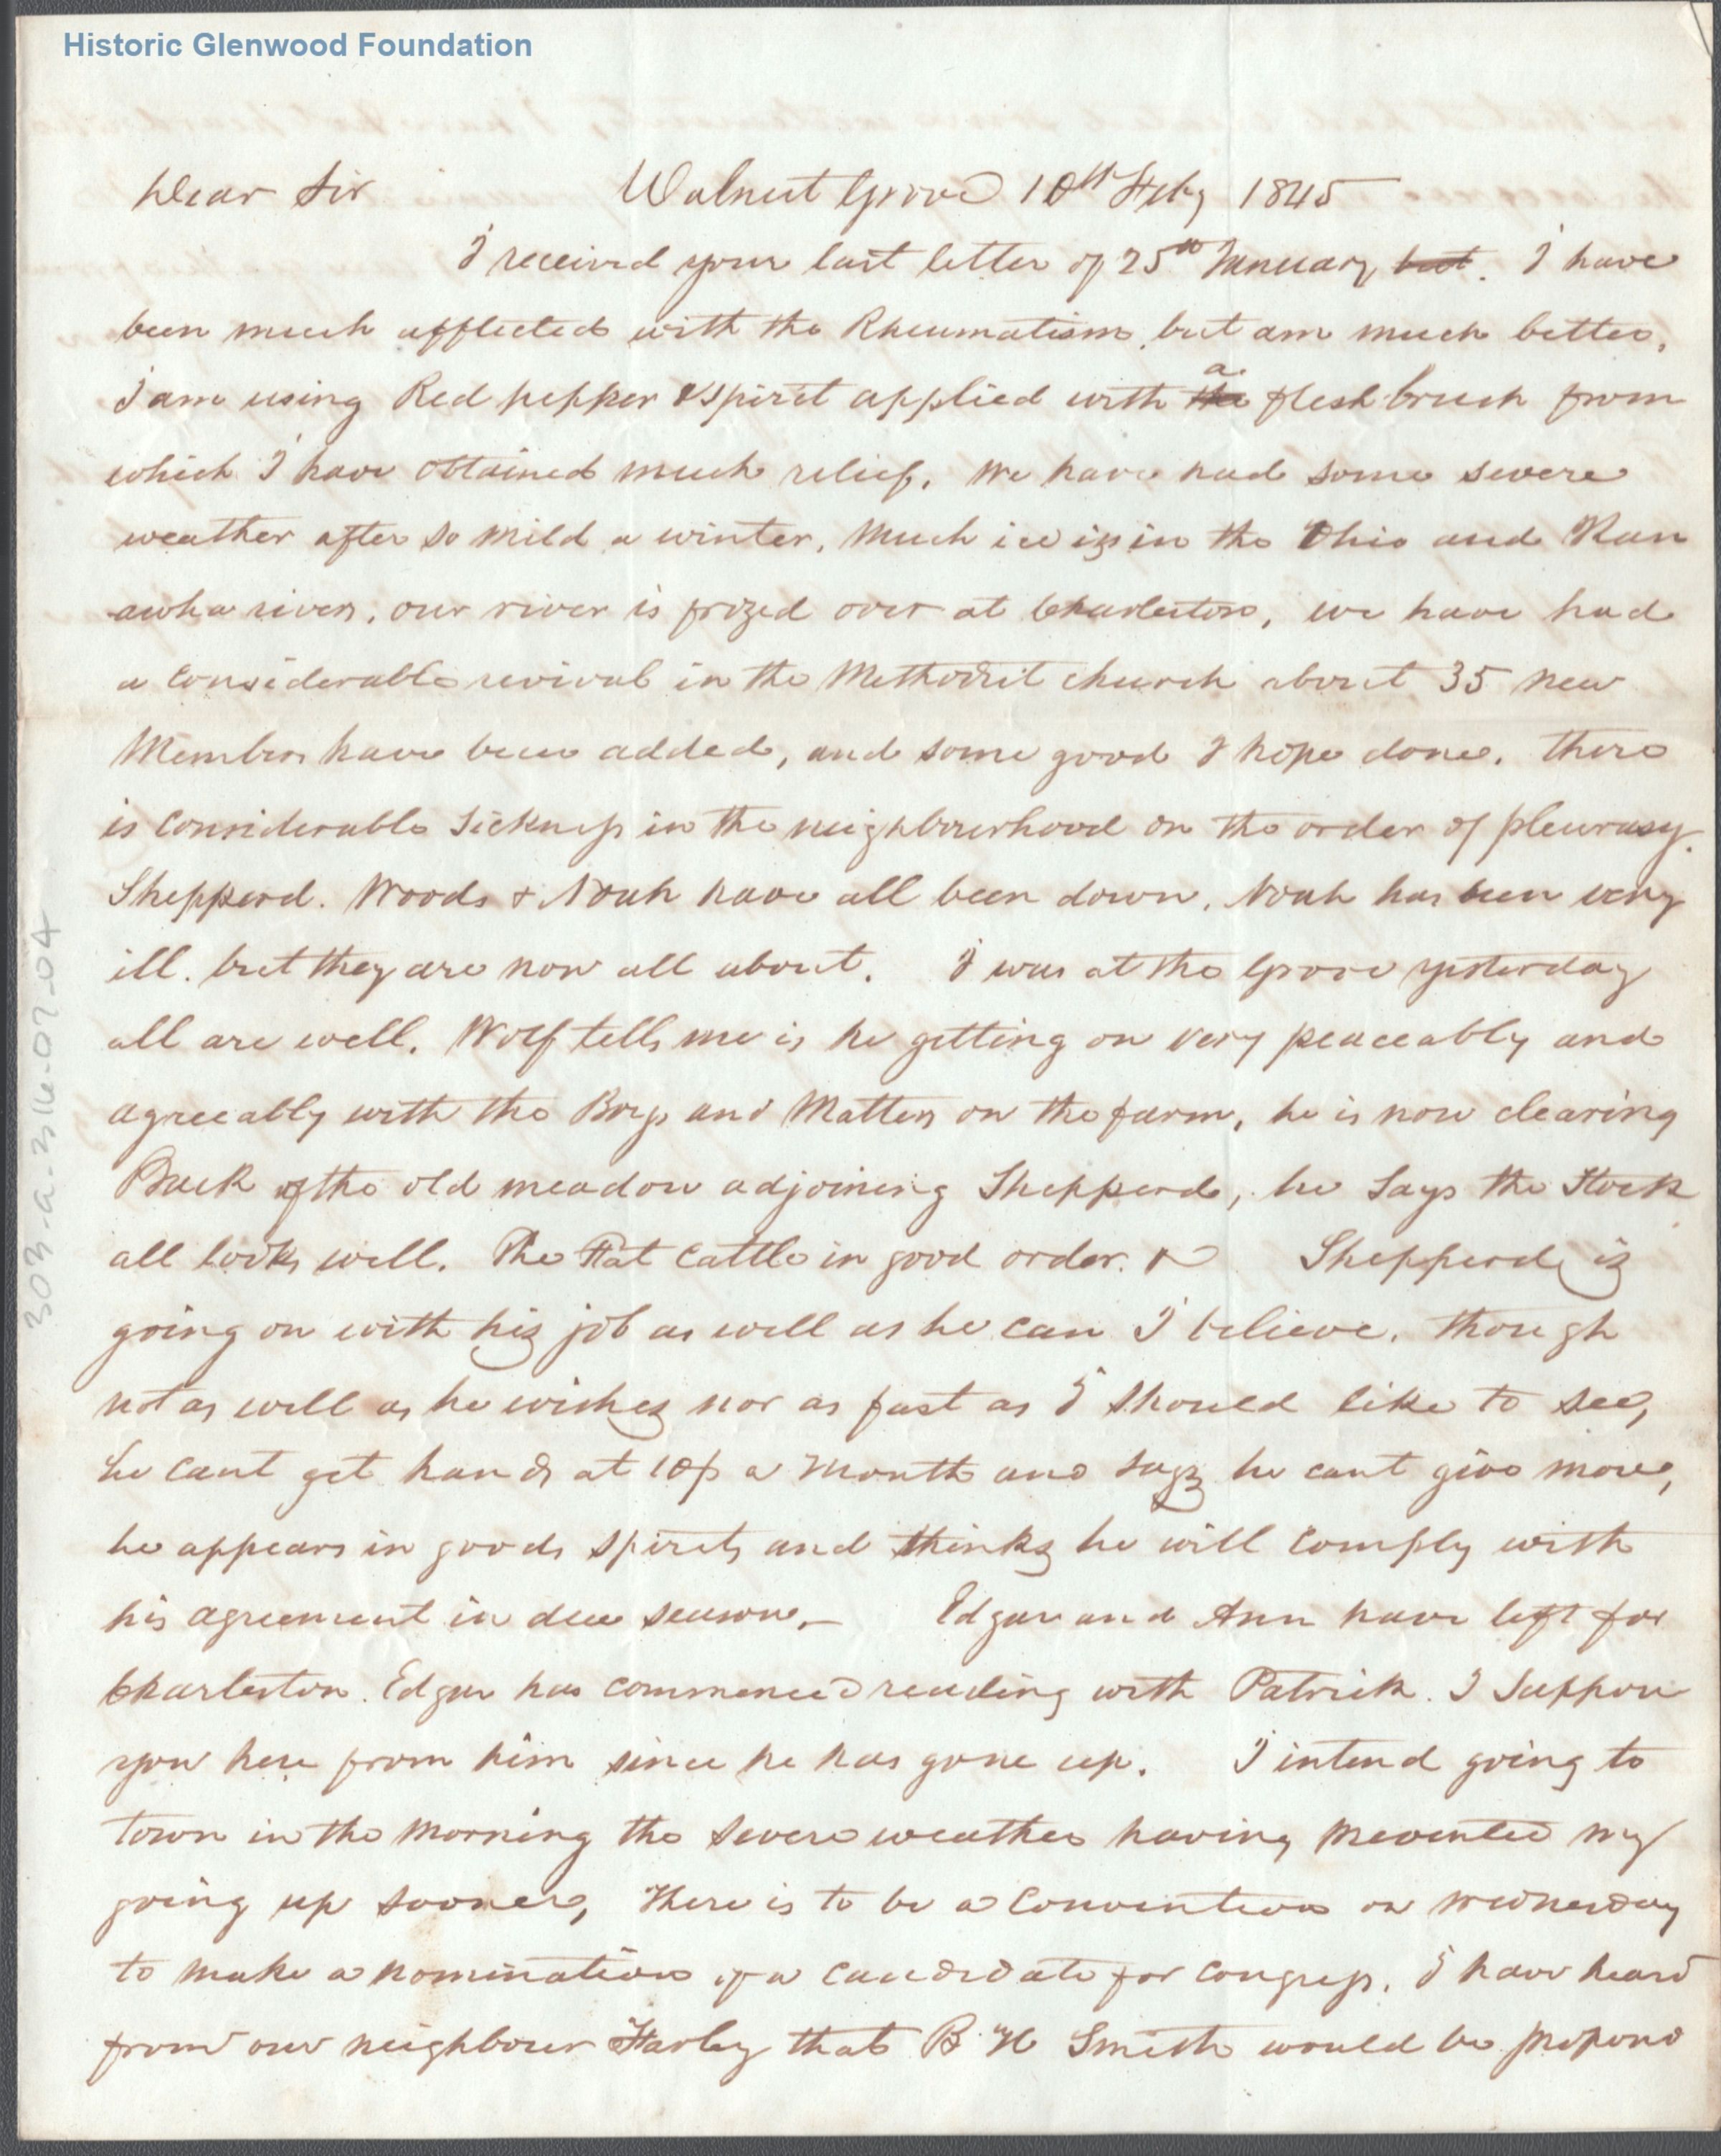 Historic Glenwood Foundation
Dear Sir Walnut Grove 10th Feby 1845
I received your last letter of 25th January but. I have
been much afflicted with the Rheumatism, but am much better,
I am using Red pepper & spirit applied with the a flesh brush from
which I have obtained much relief. We have had some severe
weather after so mild a winter, Much ice is in the Ohio and Kan
awha rivers, our river is frozed over at Charleston, we have had
a considerable revival in the Methodist church about 35 new
Members have been added, and some good I hope done. there
is considerable sickness in the neighbourhood on the order of pleurasy.
Shepperd. Woods & Noah have all been down, Noah has been very
ill. but they are now all about. I was at the Grove yesterday
all are well. Wolf tells me is he getting on very peaceably and
agreeably with the Boys and Matters on the farm, he is now clearing
Back of the old meadow adjoining Shepperds, he says the Stock
all looks well. The Fat Cattle in good order. Shepperd is
going on with his job as well as he can I believe, though
not as well as he wishes nor as fast as I should like to see,
he cant get hands at 10$ a month and says he cant give more,
he appears in goods spirits and thinks he will comply with
his agreement in due season.— Edgar and Ann have left for
Charleston. Edgar has commenced reading with Patrick. I suppose
you here from him since he has gone up. I intend going to
town in the morning the severe weather having prevented my
going up sooner, there is to be a Convention on Wednesday
to make a nomination of a candidate for congress. I have heard
from our neighbour Harley that B H Smith would be proposed
303-a-316-07-04